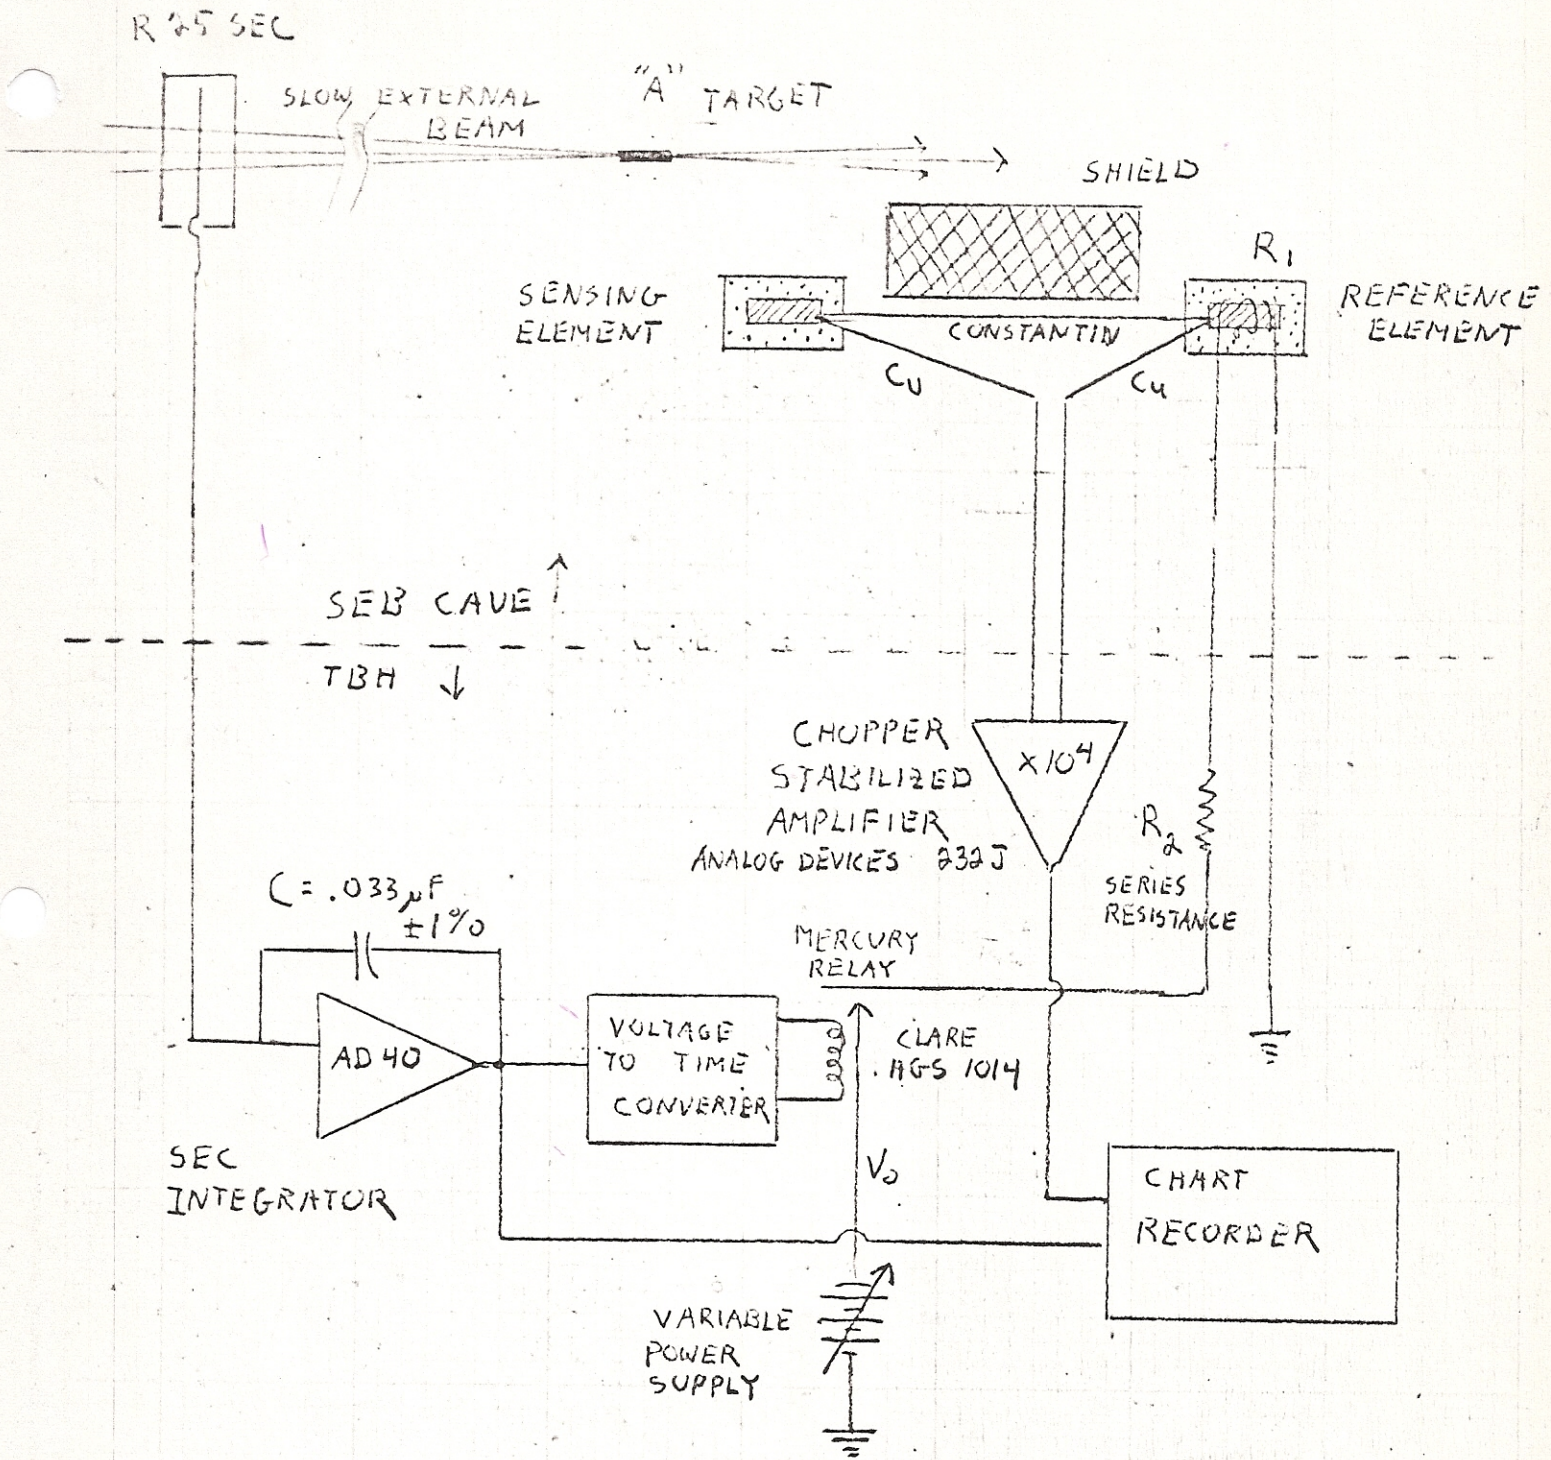 R 25 SEC
SLOW EXTERNAL
BEAM
"A" TARGET
SHIELD
R1
SENSING
ELEMENT
CONSTANTIN
REFERENCE
ELEMENT
Cu
Cu
SEB CAVE ↑
TBH ↓
CHOPPER
STABILIZED
AMPLIFIER
ANALOG DEVICES 232J
X10⁴
R2
SERIES
RESISTANCE
C = .033μF
±1%
MERCURY
RELAY
AD40
VOLTAGE
TO TIME
CONVERTER
CLARE
HGS 1014
SEC
INTEGRATOR
Vo
CHART
RECORDER
VARIABLE
POWER
SUPPLY